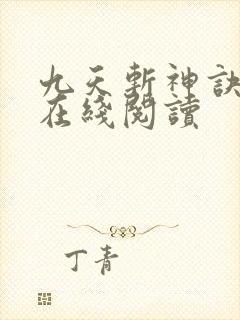 九天斬神訣
在綫閱讀
丁青